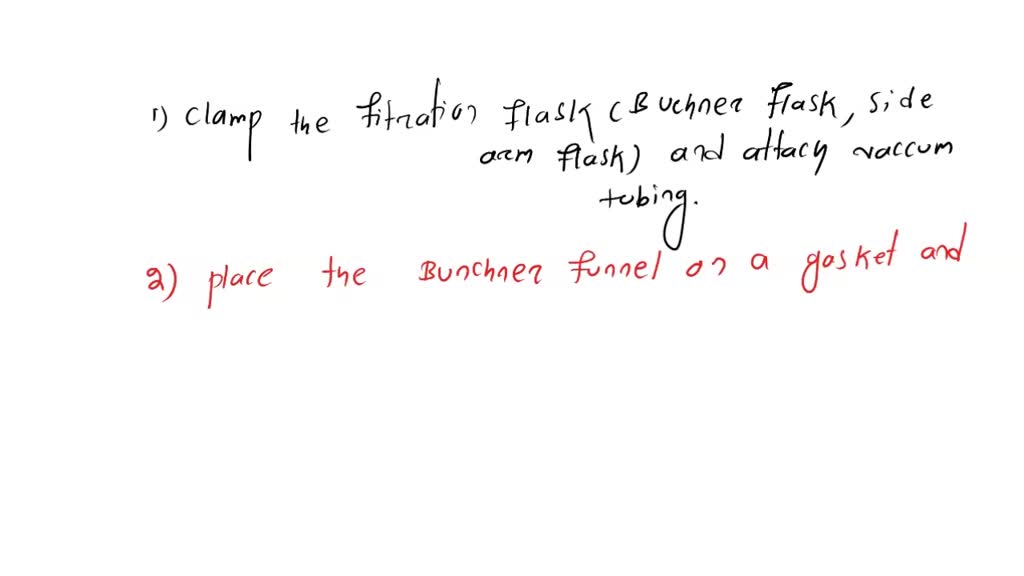 1) clamp the fitration flask (Buchner flask, side
arm flask) and attach vaccum
tubing.
2) place the Bunchner funnel on a gasket and